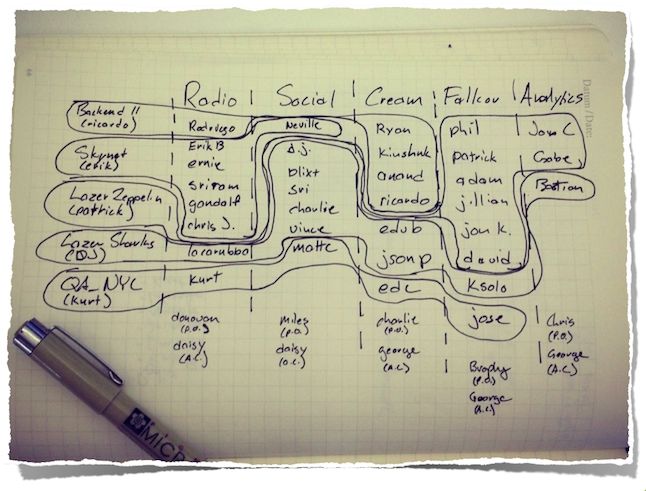 Radio Social Cream Falkor Analytics
Backend II
(ricardo)
Rodrigo Neville Ryan phil Jon C
Skynet
(erik)
Erik B D.J. Kinshuk patrick Gabe
ernie blixt anand adam Bastian
Lazer Zeppelin
(patrick)
sriram sri ricardo jillian
gandalf charlie edub jon K.
chris J. vince jsonp david
Lazer Sharks
(DJ)
mattc edc Ksolo
QA_NYC
(Kurt)
kurt jose
donovan
(P.O.)
daisy
(A.C.)
miles
(P.O.)
daisy
charlie
(P.O.)
george
(A.C.)
Brophy
(P.O.)
George
(A.C.)
Chris
(P.O.)
George
(A.C.)
Datum / Date:
MICR